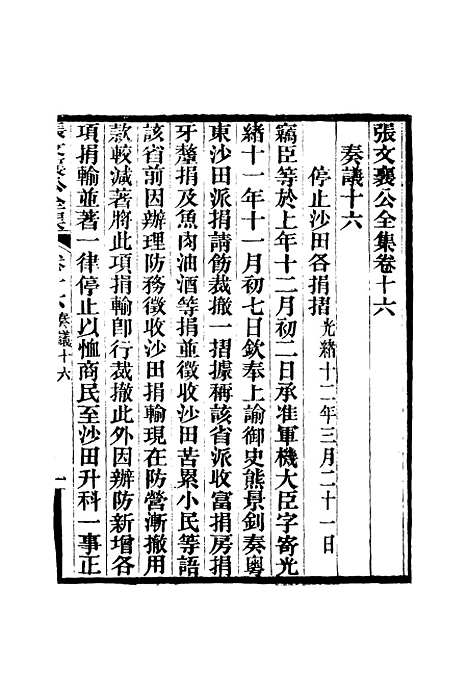 張文襄公全集卷十六
奏議十六
停止沙田各捐摺 光緒十二年三月二十一日
竊臣等於上年十二月初二日承准軍機大臣字寄光
緒十一年十一月初七日欽奉上諭御史熊景釗奏粵
東沙田派捐請飭裁撤一摺據稱該省派收富捐房捐
牙釐捐及魚肉油酒等捐並徵收沙田苦累小民等語
該省前因辦理防務徵收沙田捐輸現在防營漸撤用
款較減著將此項捐輸卽行裁撤此外因辦防新增各
項捐輸並著一律停止以恤商民至沙田升科一事正
張文襄公全集 卷十六 奏議十六 一